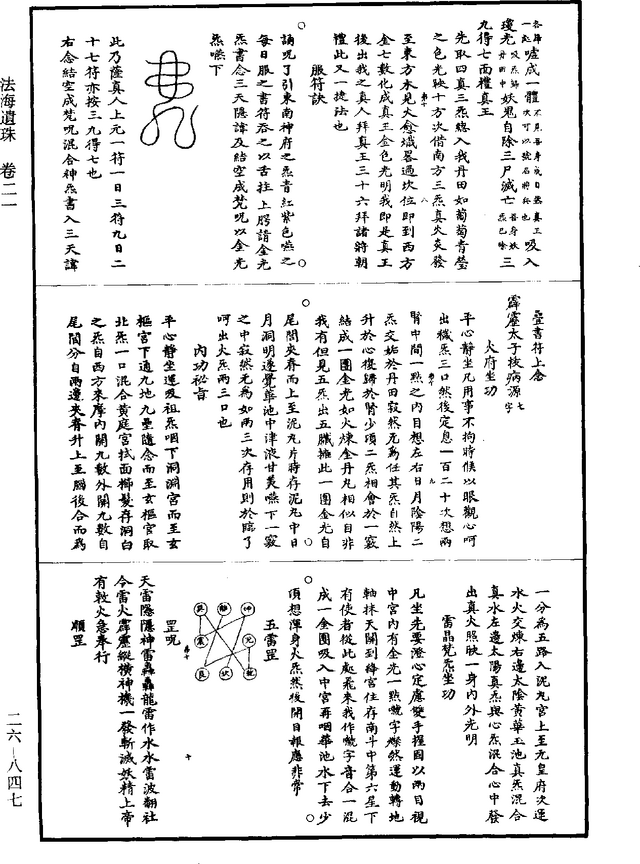 噓成一體
吸入
瓊光
妖鬼自除三尸滅亡
三
九得七面禮真王
先取四真三炁總入我丹田如蔔萄青瑩
之色光映十方次借南方三炁真火炎發
至東方木見火愈熾畧過坎位即到西方
金七數化成真王金色光明我即是真王
後出我之真人拜真王三十六拜諸將朝
禮此又一捷法也
服符訣
誦呪了引東南神府之炁青紅紫色嚥之
每日服之書符吞之以舌拄上腭請金光
炁書念三天隱諱及結空成梵呪以金光
炁嚥下
此乃薩真人上元一符一日三符九日二
十七符亦按三九得七也
右念結空成梵呪混合神炁書入三天諱
疊書符上念
霹靂太子梭病源七字
火府坐功
平心静坐凡用事不拘時候以眼觀心呵
出穢炁三口然後定息一百二十次想兩
腎中間一點之內目想左右日月陰陽二
炁交姤於丹田寂然无爲任其炁自然上
升於心復歸於腎少項二炁相會於一竅
結成一團金光如火煉金丹丸相似目非
我有但見五炁出五臟擁此一團金光自
尾閭夾脊而上至泥丸片時存泥丸中日
月洞明遂覺華池中津液甘美嚥下一竅
之中寂然无爲如兩三次存用則於臨了
呵出火炁兩三口也
內功祕旨
平心静坐運吸祖炁咽下洞淵宮而至玄
樞宮下通九地九壘隨念而至玄樞宮取
北炁一口混合黃庭宮拭面櫛髮存洞白
之炁自西方來摩內關九數外關九數自
尾閭分自兩邊夾脊升上至腦後合而爲
一分爲五路入泥丸宮上至九皇府次運
水火交煉右邊太陰黃華玉池真炁混合
真水左邊太陽真炁與心炁混合心中發
出真火照映一身內外光明
雷晶梵炁坐功
凡坐先要澄心定慮雙手握固以兩目視
中宮內有金光一點㘕字爍然運動轉地
軸抹天關到絳宮住存南斗中第六星下
有使者從此處飛來我作㘕字音合一混
成一金團吸入中宮再咽華池水下去少
頃想渾身火炁然後開目報應非常
五雷罡
罡呪
天雷隱隱神雷轟轟龍雷作水水雷波翻社
令雷火霹靂縱橫神機一發斬滅妖精上帝
有敕火急奉行
順罡
法海遺珠 卷二一
二六—八四七